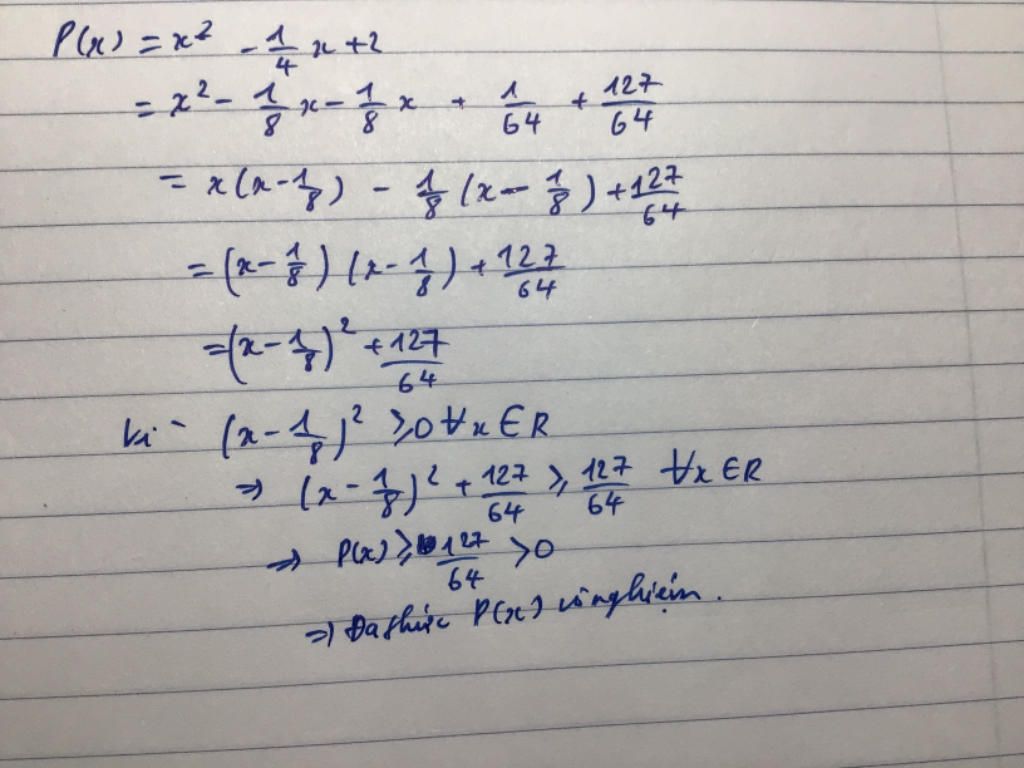 P(x) = x² - 1/4 x + 2
= x² - 1/8 x - 1/8 x + 1/64 + 127/64
= x(x - 1/8) - 1/8 (x - 1/8) + 127/64
= (x - 1/8) (x - 1/8) + 127/64
= (x - 1/8)² + 127/64
Vì (x - 1/8)² ≥ 0 ∀x ∈ R
⇒ (x - 1/8)² + 127/64 ≥ 127/64 ∀x ∈ R
⇒ P(x) ≥ 127/64 > 0
⇒ Đa thức P(x) vô nghiệm.